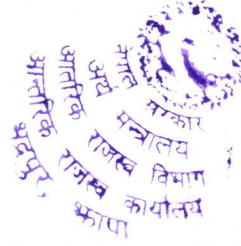 नेपाल सरकार
अर्थ मन्त्रालय
आन्तरिक राजस्व विभाग
आन्तरिक राजस्व कार्यालय